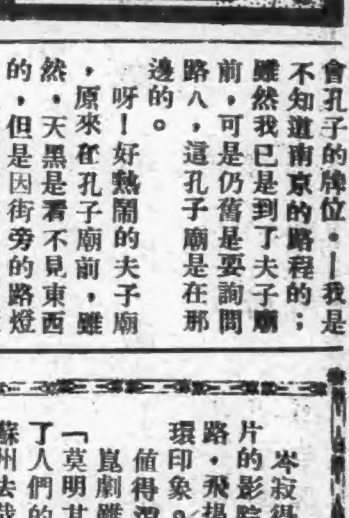 會孔子的牌位。—我是
不知道南京的路程的；
雖然我已是到了夫子廟
前，可是仍舊是要詢問
路人，這孔子廟是在那
邊的。
呀！好熱鬧的夫子廟
，原來在孔子廟前，雖
然。天黑是看不見東西
的，但是因街旁的路燈
岑寂得
片的影院
路。飛揚
環印象。
值得
崑劇雖
「莫明其
了人們的
蘇州去